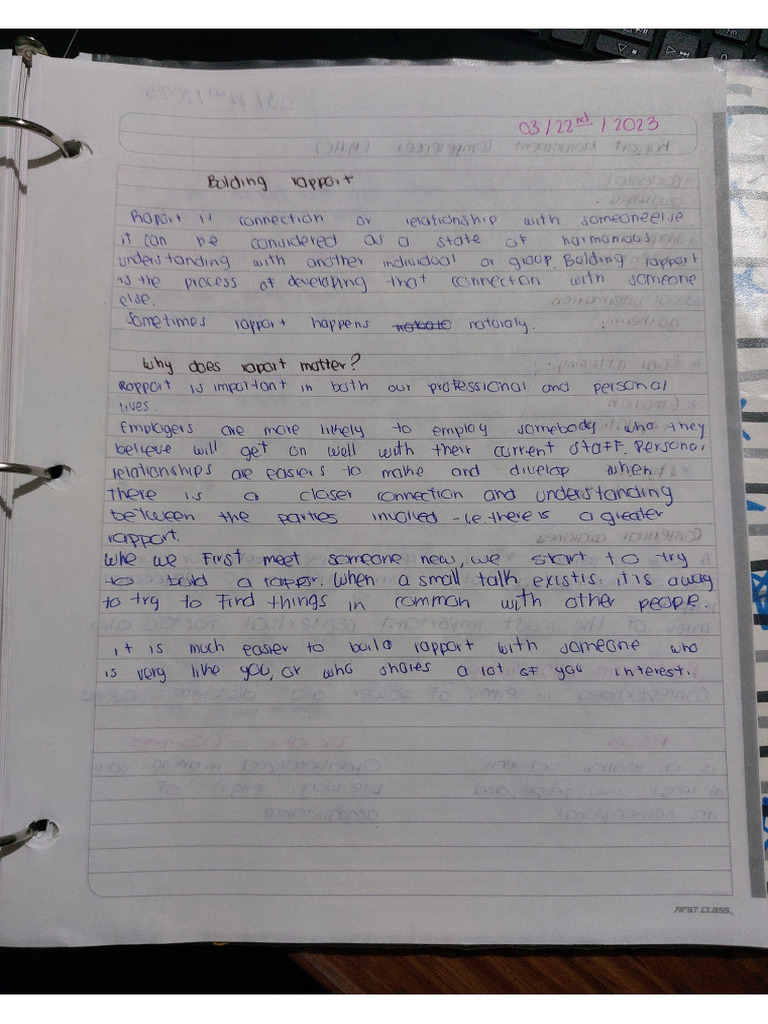 03/22nd/2023
Bulding rapport
Raport is connection or relationship with someoneelse.
it can be considered as a state of harmonious
understanding with another individual or group. Bulding rapport
is the process of developing that connection with someone
else.
Sometimes rapport happens natoraly.
Why does raport matter?
Rapport is important in both our professional and personal
lives.
Employers are more likely to employ somebody who they
believe will get on well with their current staff. Personal
relationships are easiers to make and divelop when
there is a closer connection and understanding
between the parties involved -i.e there is a greater
rapport.
Whe we first meet someone new, we start to try
to build a rapper. When a small talk existis. it is away
to try to find things in common with other people.
it is much easier to build rapport with someone who
is very like you, or who shares a lot of you interest.
FIRST CLASS